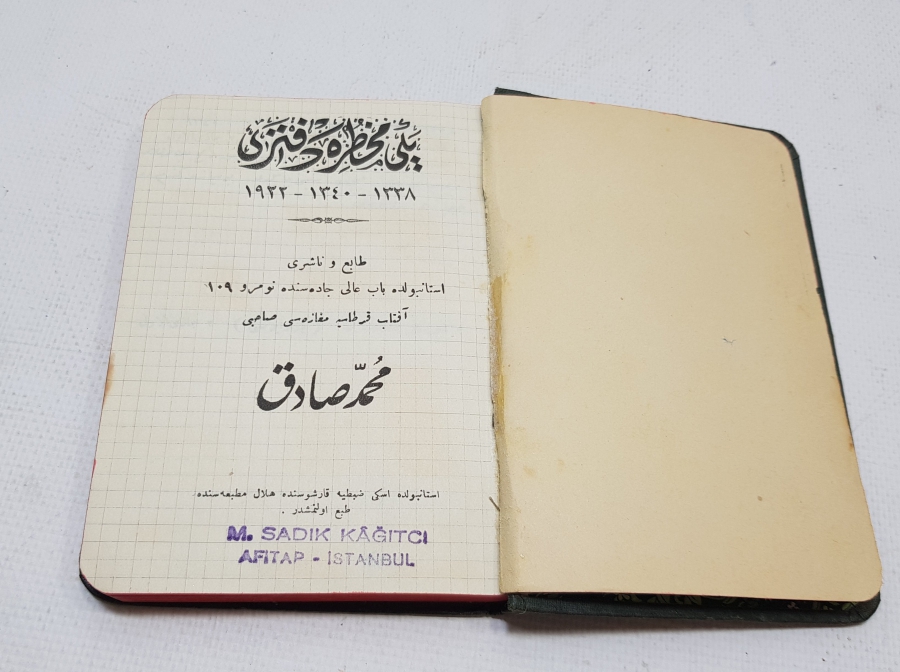 یڭی مخطره دفتری
١٣٣٨ – ١٣٤٠ – ١٩٢٢
طابع و ناشری
استانبولده باب عالی جاده‌سنده نومرو ١٠٩
آفتاب قرطاسیه مغازه‌سی صاحبی
محمد صادق
استانبولده اسكی ضبطیه قارشوسنده هلال مطبعه‌سنده
طبع اولنمشدر .
M. SADIK KÂĞITCI
AFİTAP - İSTANBUL